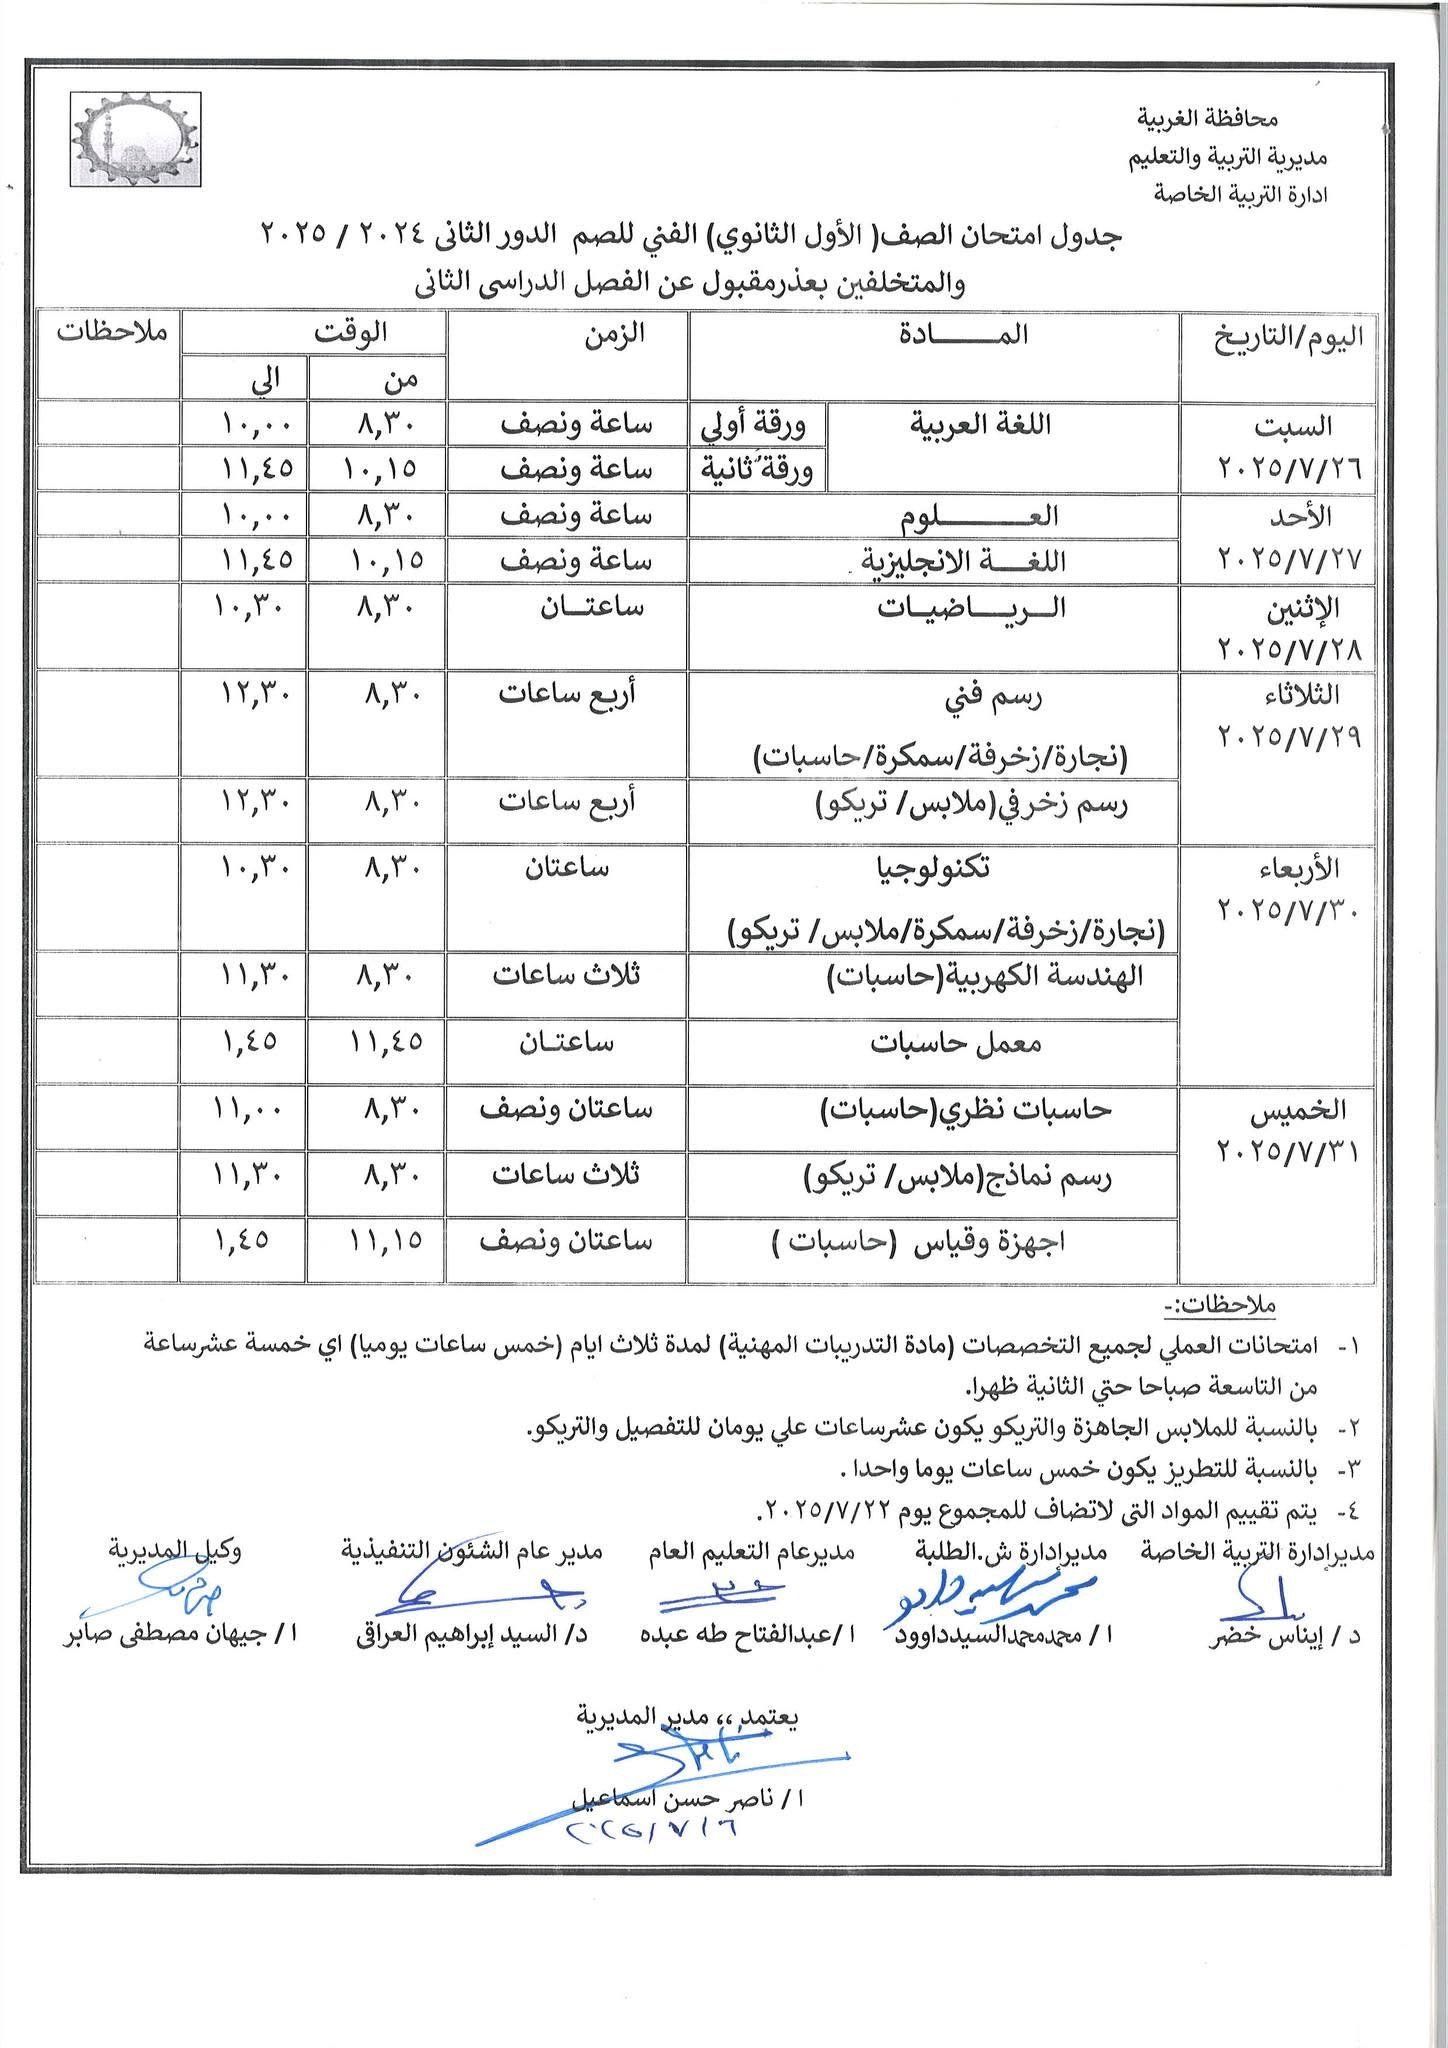 محافظة الغربية
مديرية التربية والتعليم
ادارة التربية الخاصة
جدول امتحان الصف( الأول الثانوي) الفني للصم الدور الثانى ٢٠٢٤ / ٢٠٢٥
والمتخلفين بعذرمقبول عن الفصل الدراسى الثانى
اليوم/التاريخ المــــــادة الزمن الوقت ملاحظات
من الي
السبت اللغة العربية ورقة أولي ساعة ونصف ٨,٣٠ ١٠,٠٠
٢٠٢٥/٧/٢٦ ورقة ثانية ساعة ونصف ١٠,١٥ ١١,٤٥
الأحد العـــــــلوم ساعة ونصف ٨,٣٠ ١٠,٠٠
٢٠٢٥/٧/٢٧ اللغـــة الانجليزية ساعة ونصف ١٠,١٥ ١١,٤٥
الإثنين الـــريـــاضيـــات ساعتـــان ٨,٣٠ ١٠,٣٠
٢٠٢٥/٧/٢٨
الثلاثاء رسم فني أربع ساعات ٨,٣٠ ١٢,٣٠
٢٠٢٥/٧/٢٩
(نجارة/زخرفة/سمكرة/حاسبات)
رسم زخرفي(ملابس/ تريكو) أربع ساعات ٨,٣٠ ١٢,٣٠
الأربعاء تكنولوجيا ساعتان ٨,٣٠ ١٠,٣٠
٢٠٢٥/٧/٣٠
(نجارة/زخرفة/سمكرة/ملابس/ تريكو)
الهندسة الكهربية(حاسبات) ثلاث ساعات ٨,٣٠ ١١,٣٠
معمل حاسبات ساعتـان ١١,٤٥ ١,٤٥
الخميس حاسبات نظري(حاسبات) ساعتان ونصف ٨,٣٠ ١١,٠٠
٢٠٢٥/٧/٣١
رسم نماذج(ملابس/ تريكو) ثلاث ساعات ٨,٣٠ ١١,٣٠
اجهزة وقياس (حاسبات ) ساعتان ونصف ١١,١٥ ١,٤٥
ملاحظات:-
١- امتحانات العملي لجميع التخصصات (مادة التدريبات المهنية) لمدة ثلاث ايام (خمس ساعات يوميا) اي خمسة عشرساعة
من التاسعة صباحا حتي الثانية ظهرا.
٢- بالنسبة للملابس الجاهزة والتريكو يكون عشرساعات علي يومان للتفصيل والتريكو.
٣- بالنسبة للتطريز يكون خمس ساعات يوما واحدا .
٤- يتم تقييم المواد التى لاتضاف للمجموع يوم ٢٠٢٥/٧/٢٢.
مديرإدارة التربية الخاصة مديرإدارة ش.الطلبة مديرعام التعليم العام مدير عام الشئون التنفيذية وكيل المديرية
د / إيناس خضر ا / محمدمحمدالسيدداوود ا /عبدالفتاح طه عبده د/ السيد إبراهيم العراقى ا / جيهان مصطفى صابر
يعتمد ،، مدير المديرية
ا / ناصر حسن اسماعيل
٢٠٢٥/٧/٦